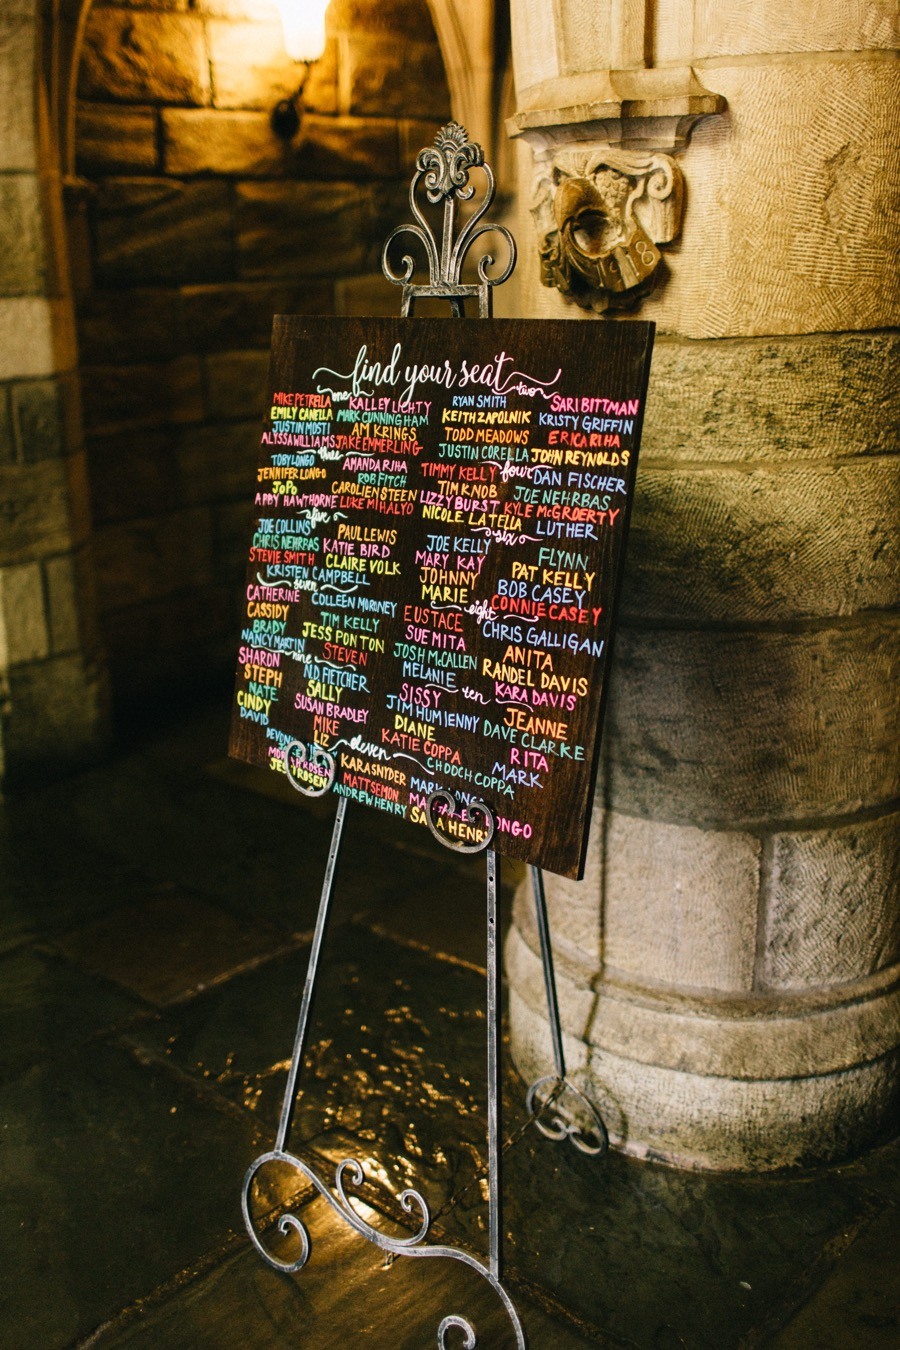 find your seat
one
MIKE PETRELLA KALLEY LICHTY
EMILY CANELLA MARK CUNNINGHAM
JUSTIN MOSTI AM KRINGS
ALYSSA WILLIAMS JAKE EMMERLING
two
RYAN SMITH SARI BITTMAN
KEITH ZAPOLNIK KRISTY GRIFFIN
TODD MEADOWS ERICA RIHA
JUSTIN CORELLA JOHN REYNOLDS
three
TOBY LONGO AMANDA RIHA
JENNIFER LONGO ROB FITCH
JOPO CAROLIEN STEEN
ABBY HAWTHORNE LUKE MIHALYO
four
TIMMY KELLY DAN FISCHER
TIM KNOB JOE NEHRBAS
LIZZY BURST KYLE McGROERTY
NICOLE LATELLA LUTHER
five
JOE COLLINS PAUL LEWIS
CHRIS NEHRBAS KATIE BIRD
STEVIE SMITH CLAIRE VOLK
KRISTEN CAMPBELL
six
JOE KELLY FLYNN
MARY KAY PAT KELLY
JOHNNY BOB CASEY
MARIE CONNIE CASEY
seven
CATHERINE COLLEEN MORONEY
CASSIDY TIM KELLY
BRADY JESS PONTON
NANCY MARTIN STEVEN
eight
EUSTACE CHRIS GALLIGAN
SUE MITA ANITA
JOSH McCALLEN RANDEL DAVIS
MELANIE KARA DAVIS
nine
SHARON N.D. FLETCHER
STEPH SALLY
NATE SUSAN BRADLEY
CINDY MIKE
DAVID LIZ
ten
SISSY JEANNE
JIM HUMIENNY DAVE CLARKE
DIANE RITA
KATIE COPPA MARK
CHOOCH COPPA
eleven
KARA SNYDER
ROSEN MATT SEMON
ROSEN ANDREW HENRY
LONGO
SARA HENRY
1918